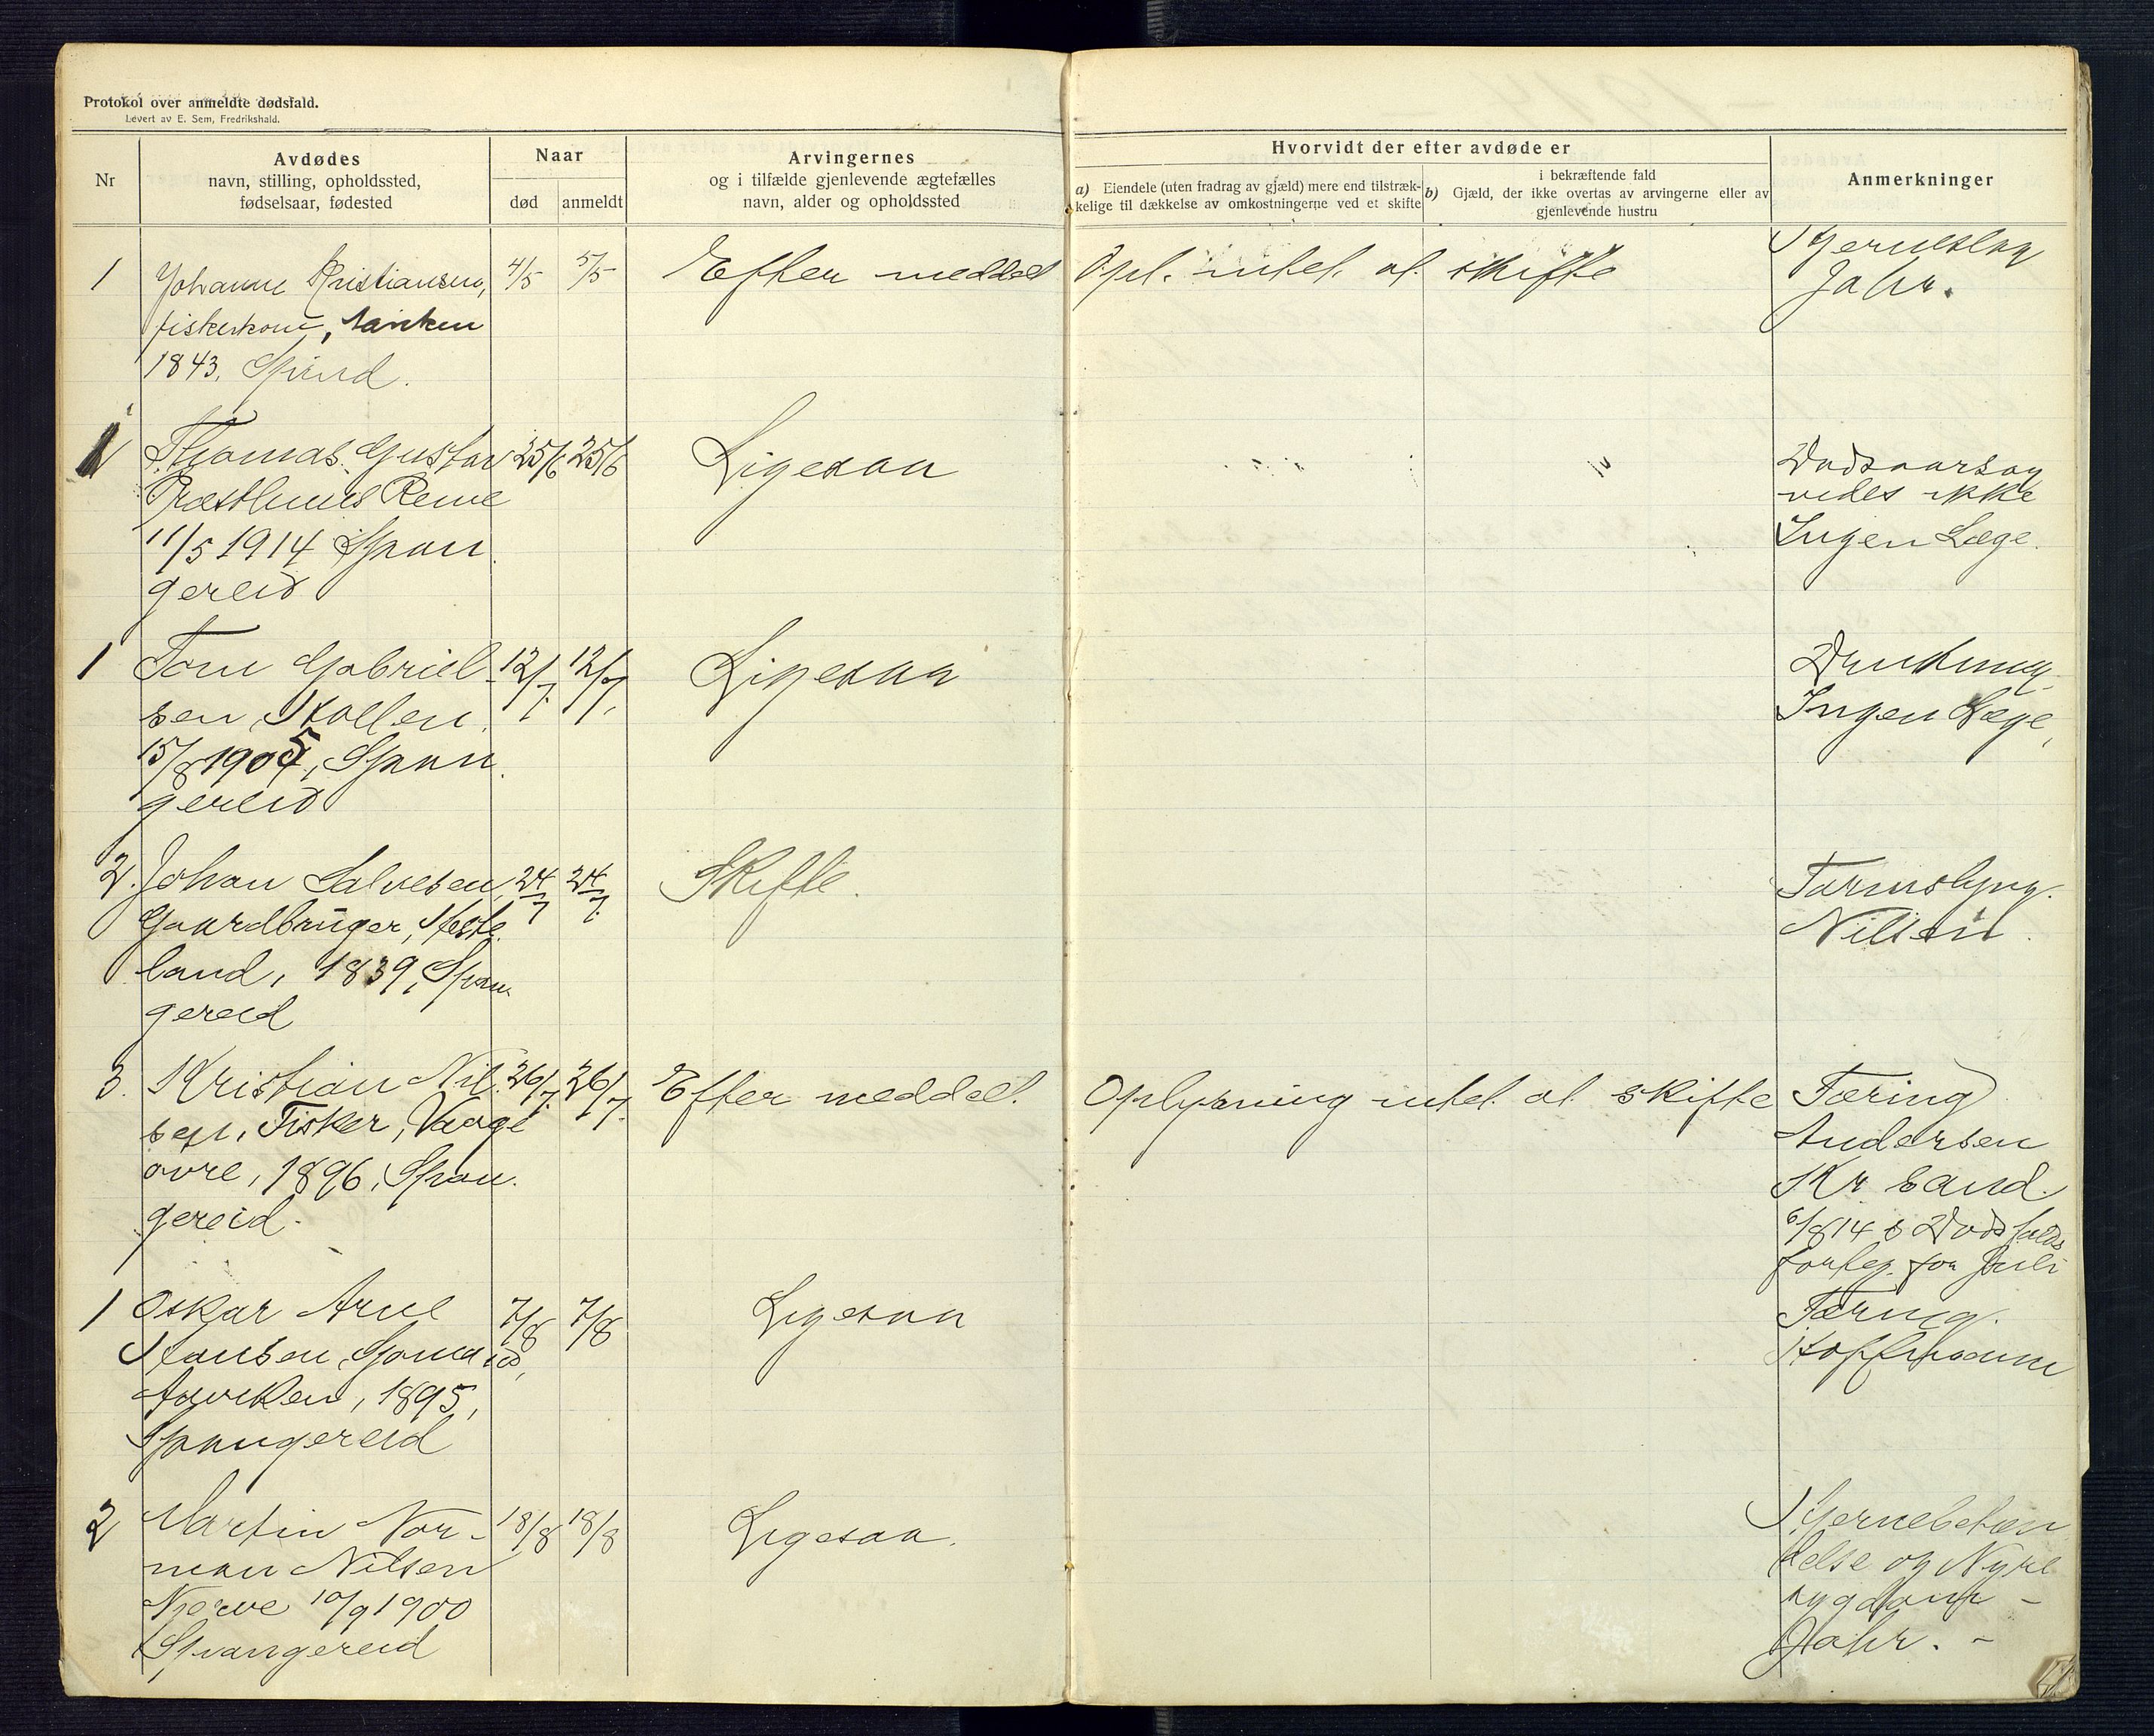 Protokol over anmeldte dødsfald.
Levert av E. Sem, Fredrikshald.
Nr
Avdødes
navn, stilling, opholdssted,
fødselsaar, fødested
Naar
død
anmeldt
Arvingernes
og i tilfælde gjenlevende ægtefælles
navn, alder og opholdssted
Hvorvidt der efter avdøde er
a) Eiendele (uten fradrag av gjæld) mere end tilstræk-
kelige til dækkelse av omkostningerne ved et skifte
i bekræftende fald
b) Gjæld, der ikke overtas av arvingerne eller av
gjenlevende hustru
Anmerkninger
1 Johanne Kristiansen, 4/5 5/5 Efter meddelt Opl. intet at skifte Hjerneslag
fiskerkone, Jahr.
1843, Spind.
1 Thomas Gustav 25/6 25/6 Ligesaa Dødsaarsag
Præsthuus Reme vides ikke
11/5 1914 Span Ingen Læge.
gereid
1 Tom Gabriel- 12/7. 12/7. Ligesaa Drukning
sen Skollen, Ingen Læge,
15/8 1905, Span
gereid
2. Johan Salvesen, 24/7 24/7. Skifte. Tarmslyng.
Gaardbruger, Heste Nilsen.
land, 1839, Span
gereid
3. Kristian Nil 26/7. 26/7. Efter meddelt. Oplysning intet at skifte Tæring
sen, Fisker, Vaage Andersen
øvre, 1896, Span. Kr sand.
gereid. 6/8 14 s Dødsfalds
forteg. for Juli
1 Oskar Arne 7/8 7/8 Ligesaa Tæring.
Hansen, Sømand, Hoffmann
1895,
Spangereid
2 Martin Nor- 18/8 18/8 Ligesaa. Hjernebetæn
man Nilsen delse og Nyre
Njerve 10/9 1900 sygdom -
Spangereid Jahr. -